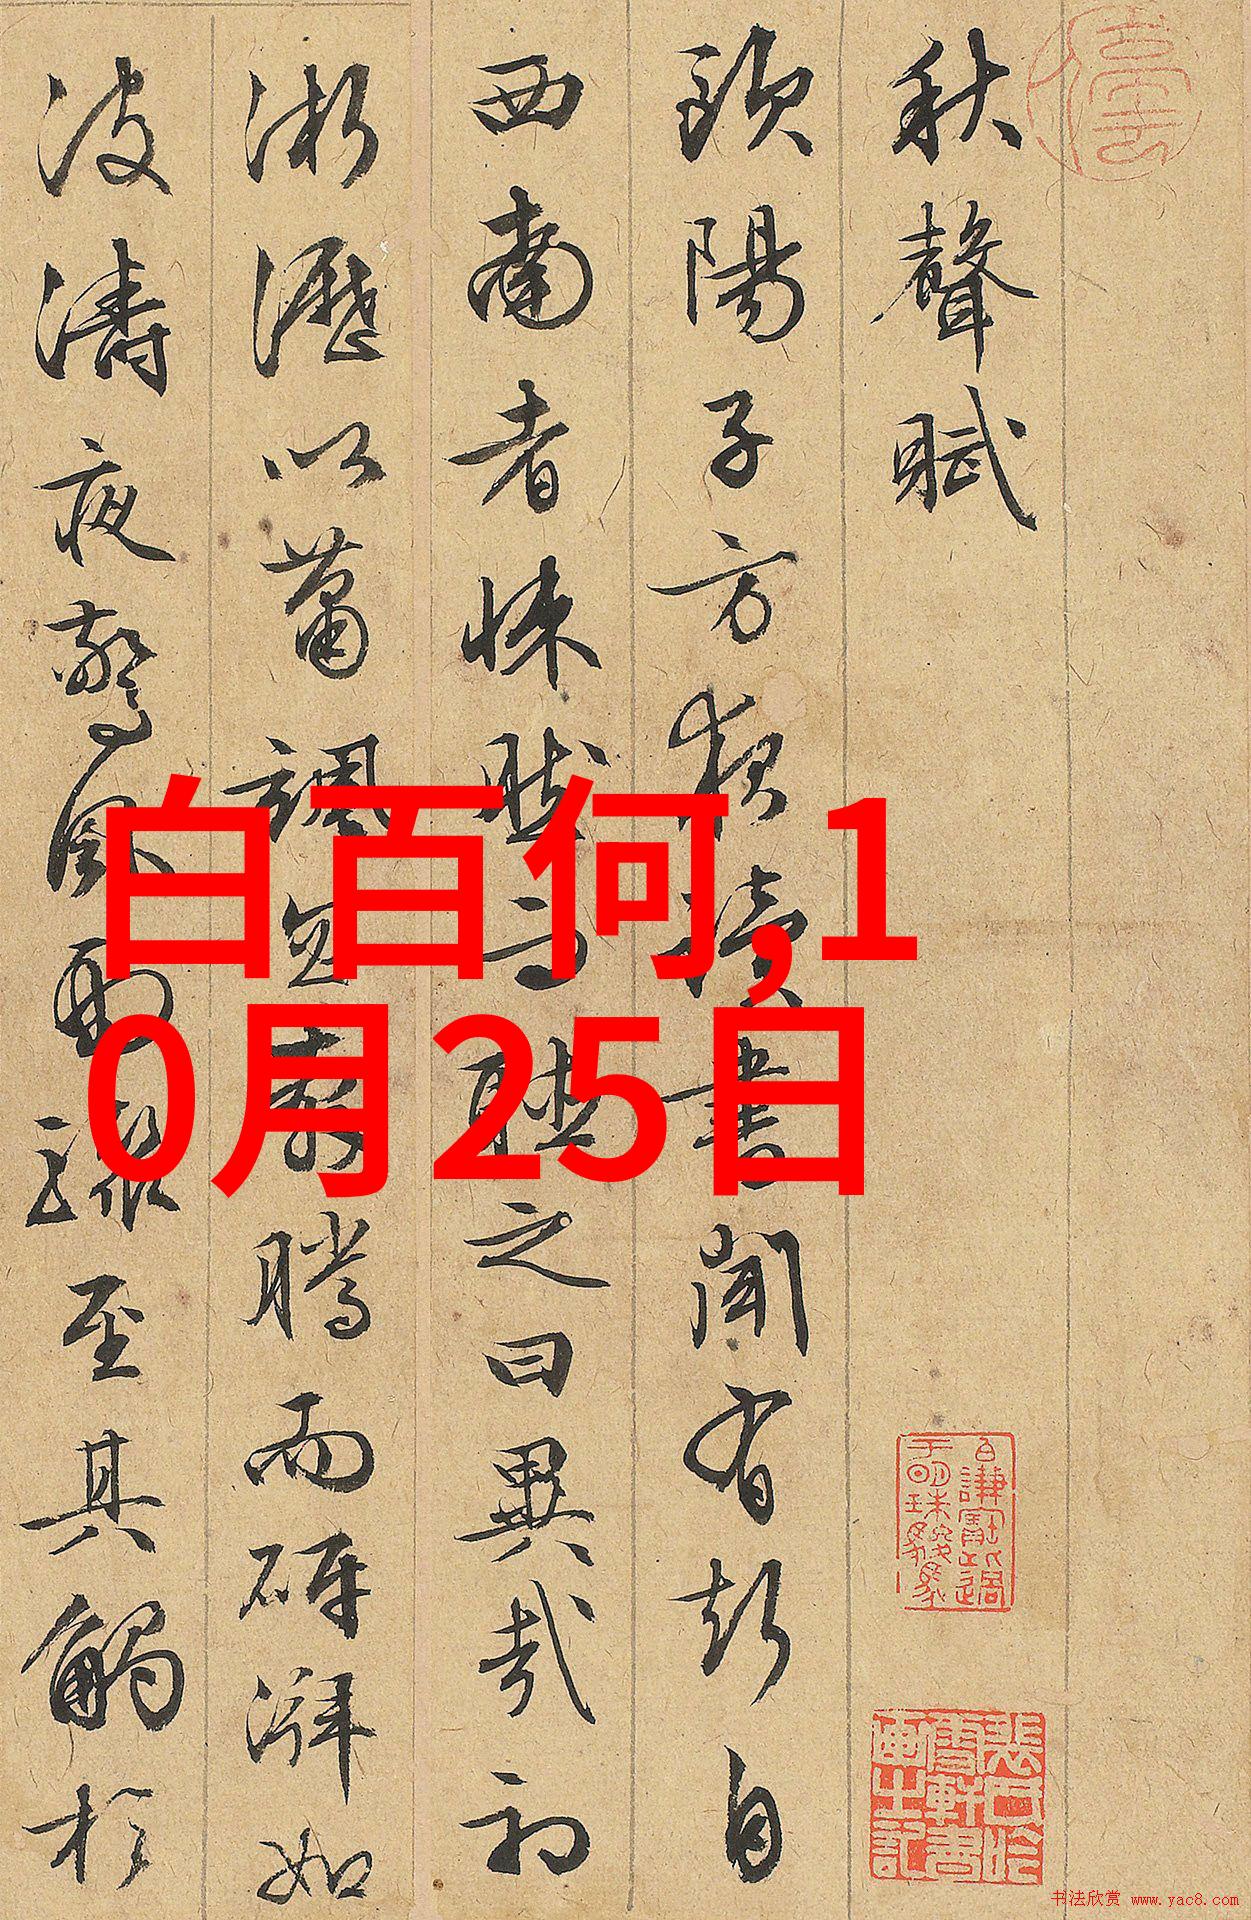 秋聲賦
歐陽子方夜讀書聞有聲自
西南者悚然而聽之曰異哉初
淅瀝以蕭颯忽奔騰而砰湃如
波濤夜驚風雨驟至其觸於
白百何,1
0月25日
书法欣赏 www.yac8.com